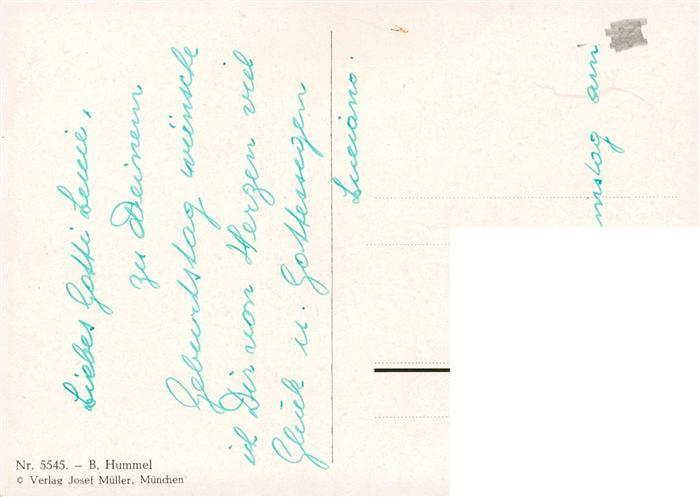 Liebes Gotti Lenie,
zu Deinem
Geburtstag wünsche
ich Dir von Herzen viel
Glück u. Gottessegen
Luciano.
mstag am
Nr. 5545. – B. Hummel
© Verlag Josef Müller, München